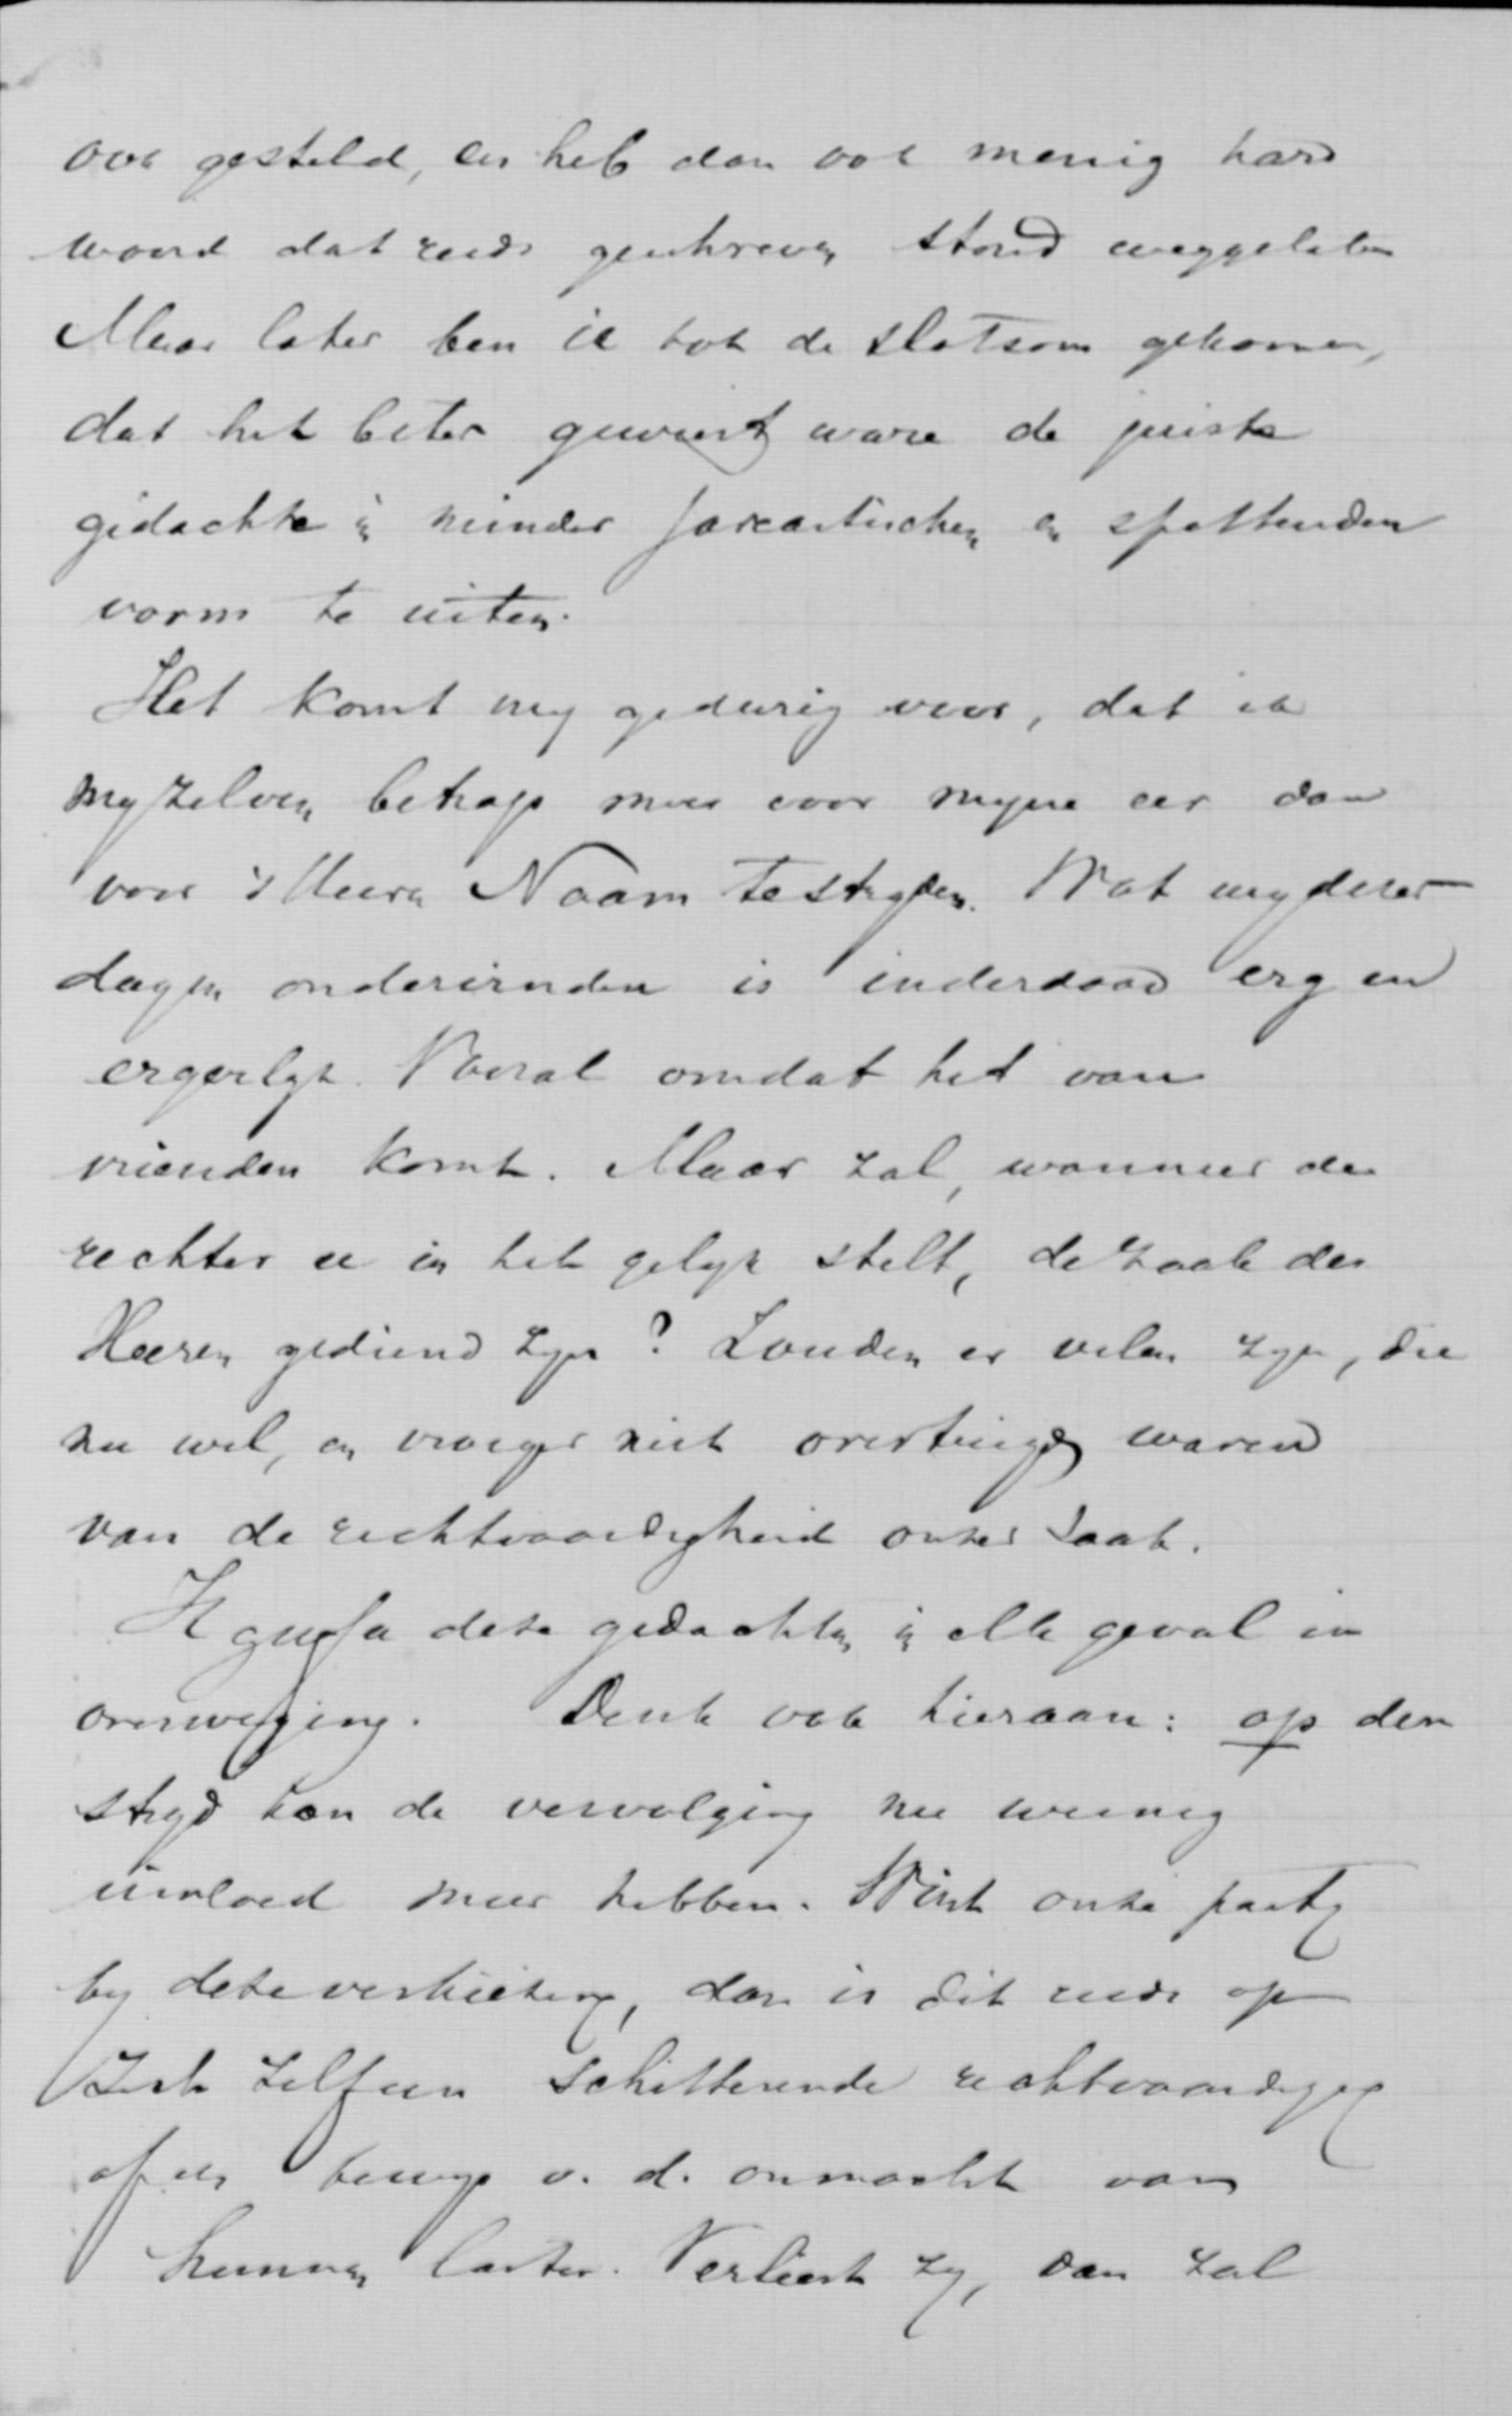 ook gesteld, en heb dan ook menig hard
woord dat reeds geschreven stond weggelaten
Maar later ben ik tot de slotsom gekomen,
dat het beter geweest ware de juiste
gedachte in minder sarcastischen en spottenden
vorm te uiten.
Het komt my gedurig voor, dat ik
myzelven betrap meer voor myne eer dan
voor 's Heeren Naam te stryden. Wat wy dezer
dagen ondervinden is inderdaad erg en
ergerlyk. Vooral omdat het van
vrienden komt. Maar zal, wanneer de
rechter u in het gelyk stelt, de zaak des
Heeren gediend zyn? Zouden er velen zyn, die
nu wel, en vroeger niet overtuigd waren
van de rechtvaardigheid onzer zaak.
Ik geef u deze gedachten in elk geval in
overweging. Denk ook hieraan: op den
stryd kan de vervolging nu weinig
invloed meer hebben. Wint onze party
by deze verkiezing, dan is dit reeds op
zich zelf een schitterende rechtvaardiging
of een bewys v. d. onmacht van
hunnen laster. Verliest zy, dan zal